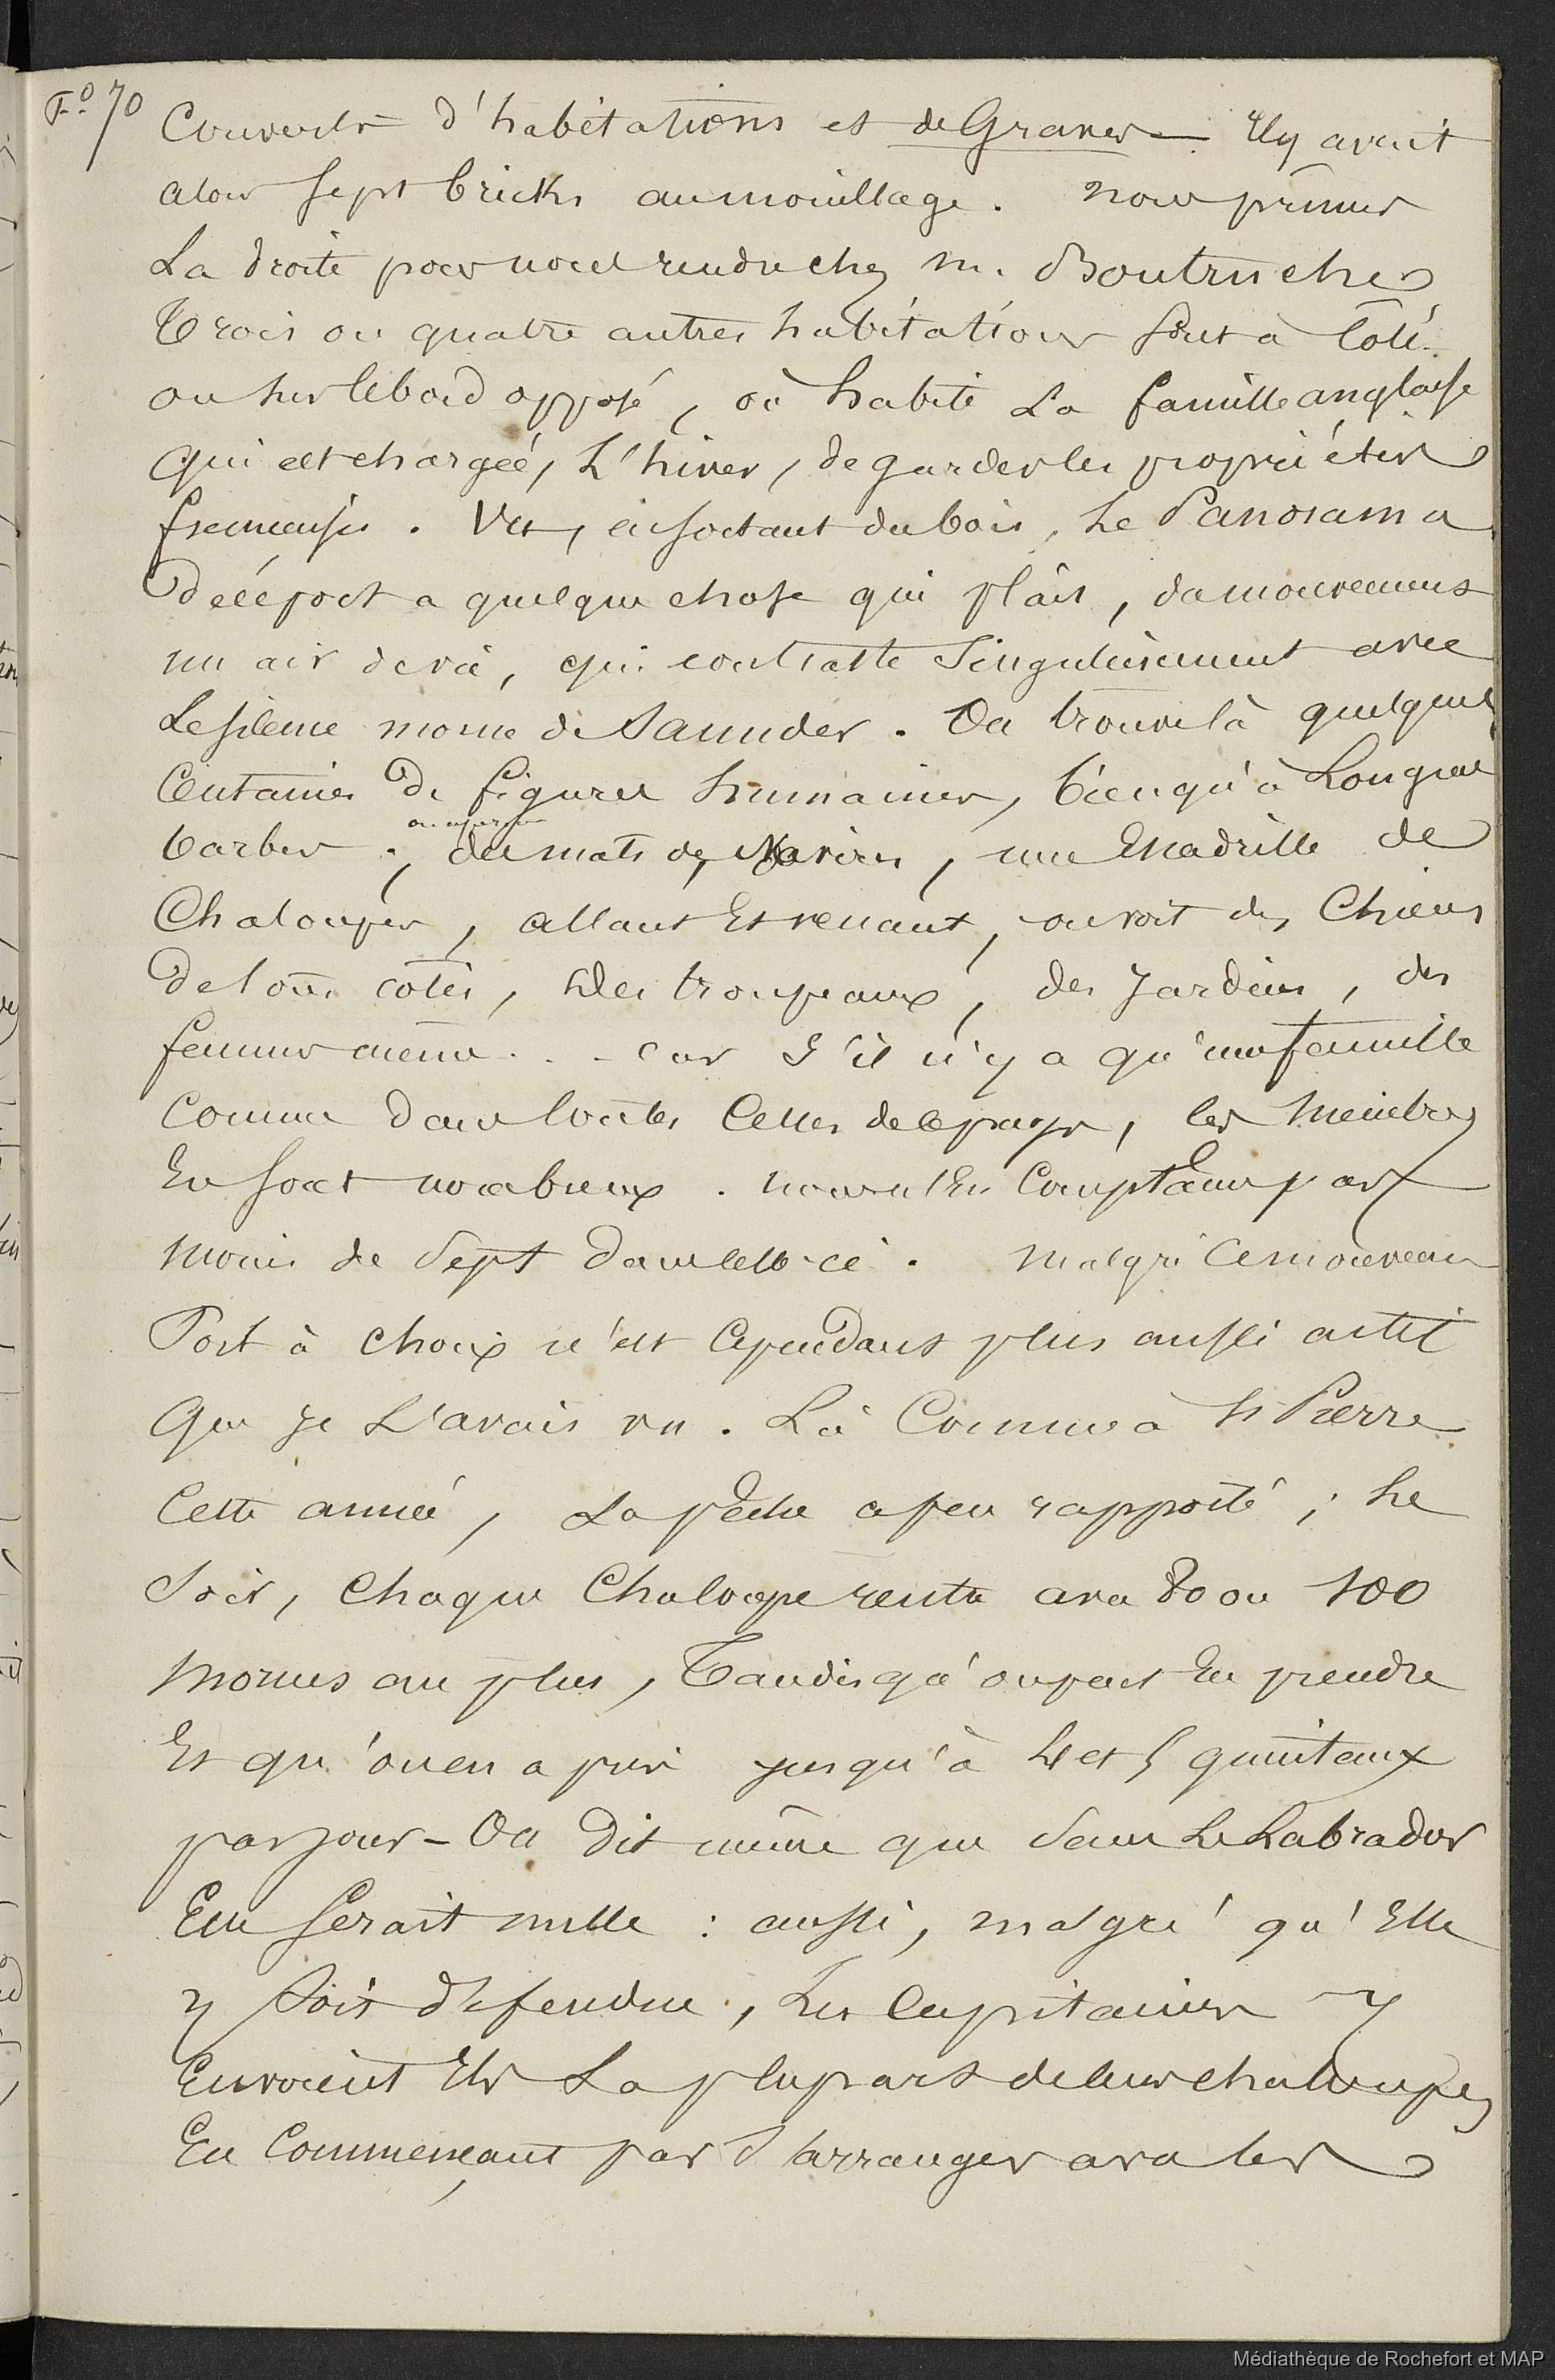 F.o 70
Couverts d'habitations et de Graves — Il y avait
alors sept bricks au mouillage. nous prîmes
La droite pour nous rendre chez m. Boutruche
Trois ou quatre autres habitations sont à Côté
ou sur le bord opposé, où habite La famille anglaise
qui est chargée, L'hiver, de garder les propriétés
françaises. Vu, en sortant du bois, Le Panorama
De ce port a quelque chose qui plait, du mouvement
un air de vie, qui contraste Singulièrement avec
Le silence morne de Saunder. On trouve là quelques
Centaines De figures humaines, bien qu'à Longues
barbes ; on aperçoit des mats de Navires, une Escadrille de
Chaloupes, allant Et venant, on voit des Chiens
De tous cotés, Des troupeaux, des Jardins, des
femmes même . . - Car S'il n'y a qu'une famille
Comme dans toutes Celles de ce pays, les membres
En sont nombreux. nous n'En Comptâmes pas
moins de Sept dans celle-ci. malgré Ce mouvement
Port à choix n'est Cependant plus aussi actif
Que Je L'avais vu. Là Comme à St Pierre
Cette année, La pêche a peu rapporté ; Le
Soir, Chaque Chaloupe rentre avec 80 ou 100
morues au plus, Tandis qu'on peut En prendre
Et qu'on en a pris jusqu'à 4 et 5 quintaux
par jour - On Dit même que sans Le Labrador
Elle serait nulle : aussi, malgré qu'Elle
y soit défendue, Les Capitaines y
Envoient Ils La plupart de leurs chaloupes
En Commençant par S'arranger avec les
Médiathèque de Rochefort et MAP